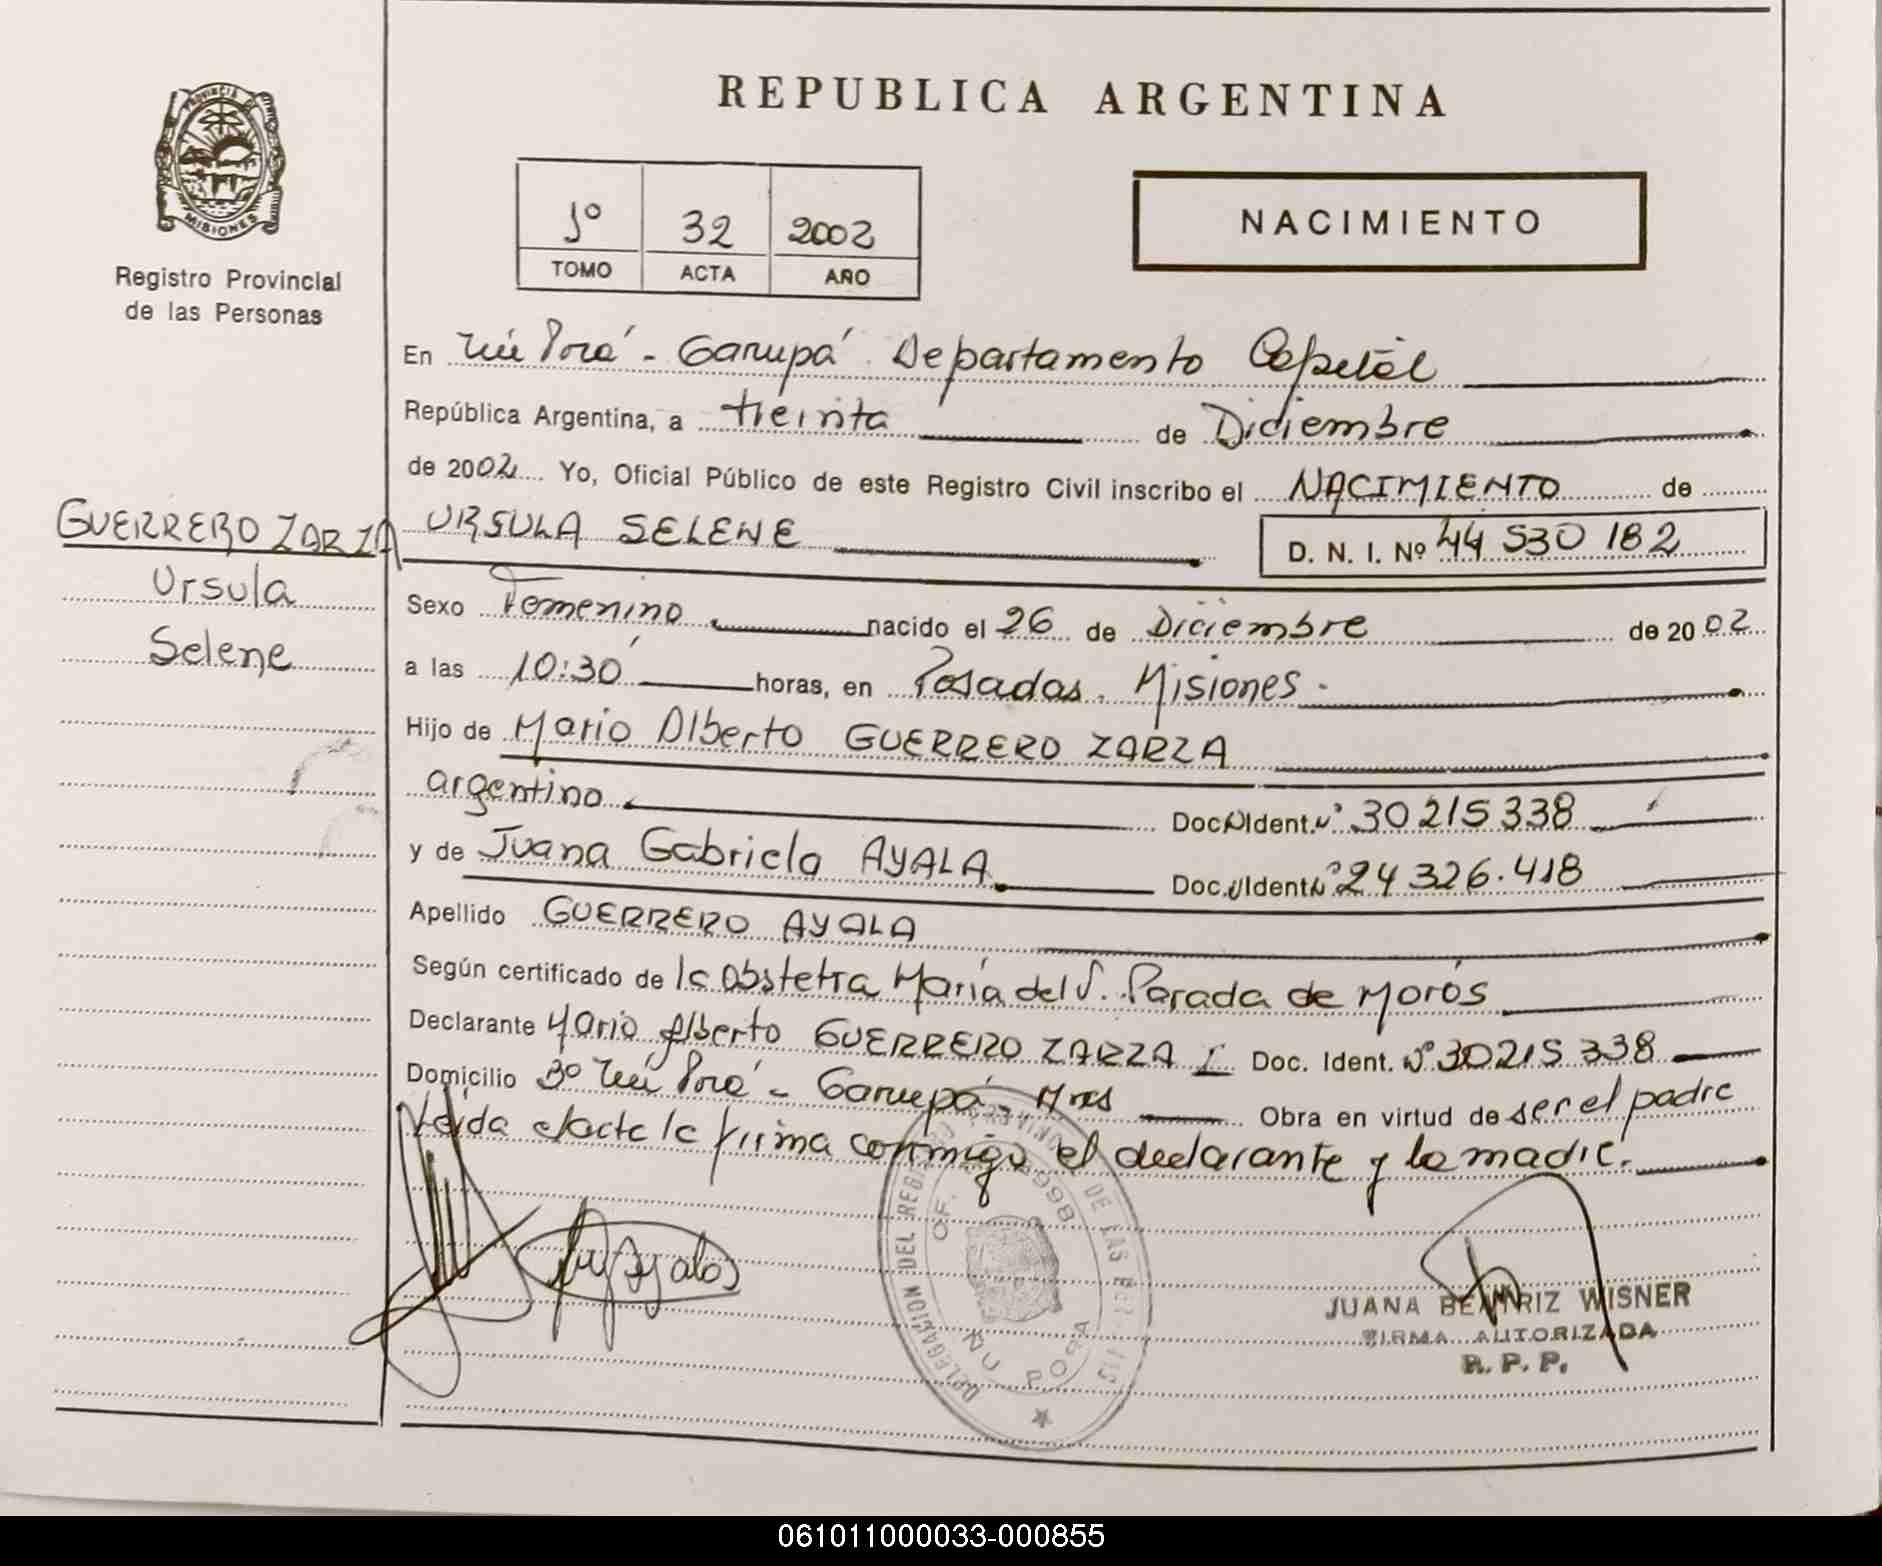 REPUBLICA ARGENTINA
PROVINCIA DE
MISIONES
Registro Provincial
de las Personas
1º 32 2002
TOMO ACTA AÑO
NACIMIENTO
En Ñú Porá - Garupá Departamento Capital
República Argentina, a treinta de Diciembre
de 2002 Yo, Oficial Público de este Registro Civil inscribo el NACIMIENTO de
GUERRERO ZARZA
Ursula
Selene
URSULA SELENE D. N. I. Nº 44 530 182
Sexo Femenino nacido el 26 de Diciembre de 2002
a las 10:30 horas, en Posadas. Misiones.
Hijo de Mario Alberto GUERRERO ZARZA
argentino Doc. Ident. Nº 30215338
y de Juana Gabriela AYALA Doc. Ident. Nº 24326.418
Apellido GUERRERO AYALA
Según certificado de la obstetra María del V. Parada de Morós
Declarante Mario Alberto GUERRERO ZARZA Doc. Ident. Nº 30215338
Domicilio Bº Ñú Porá - Garupá - Mnes Obra en virtud de ser el padre
Leída el acta la firma conmigo el declarante y la madre.
DELEGACION DEL REGISTRO PROVINCIAL DE LAS PERSONAS
OF. 998
ÑU PORA
JUANA BEATRIZ WISNER
FIRMA AUTORIZADA
R. P. P.
061011000033-000855